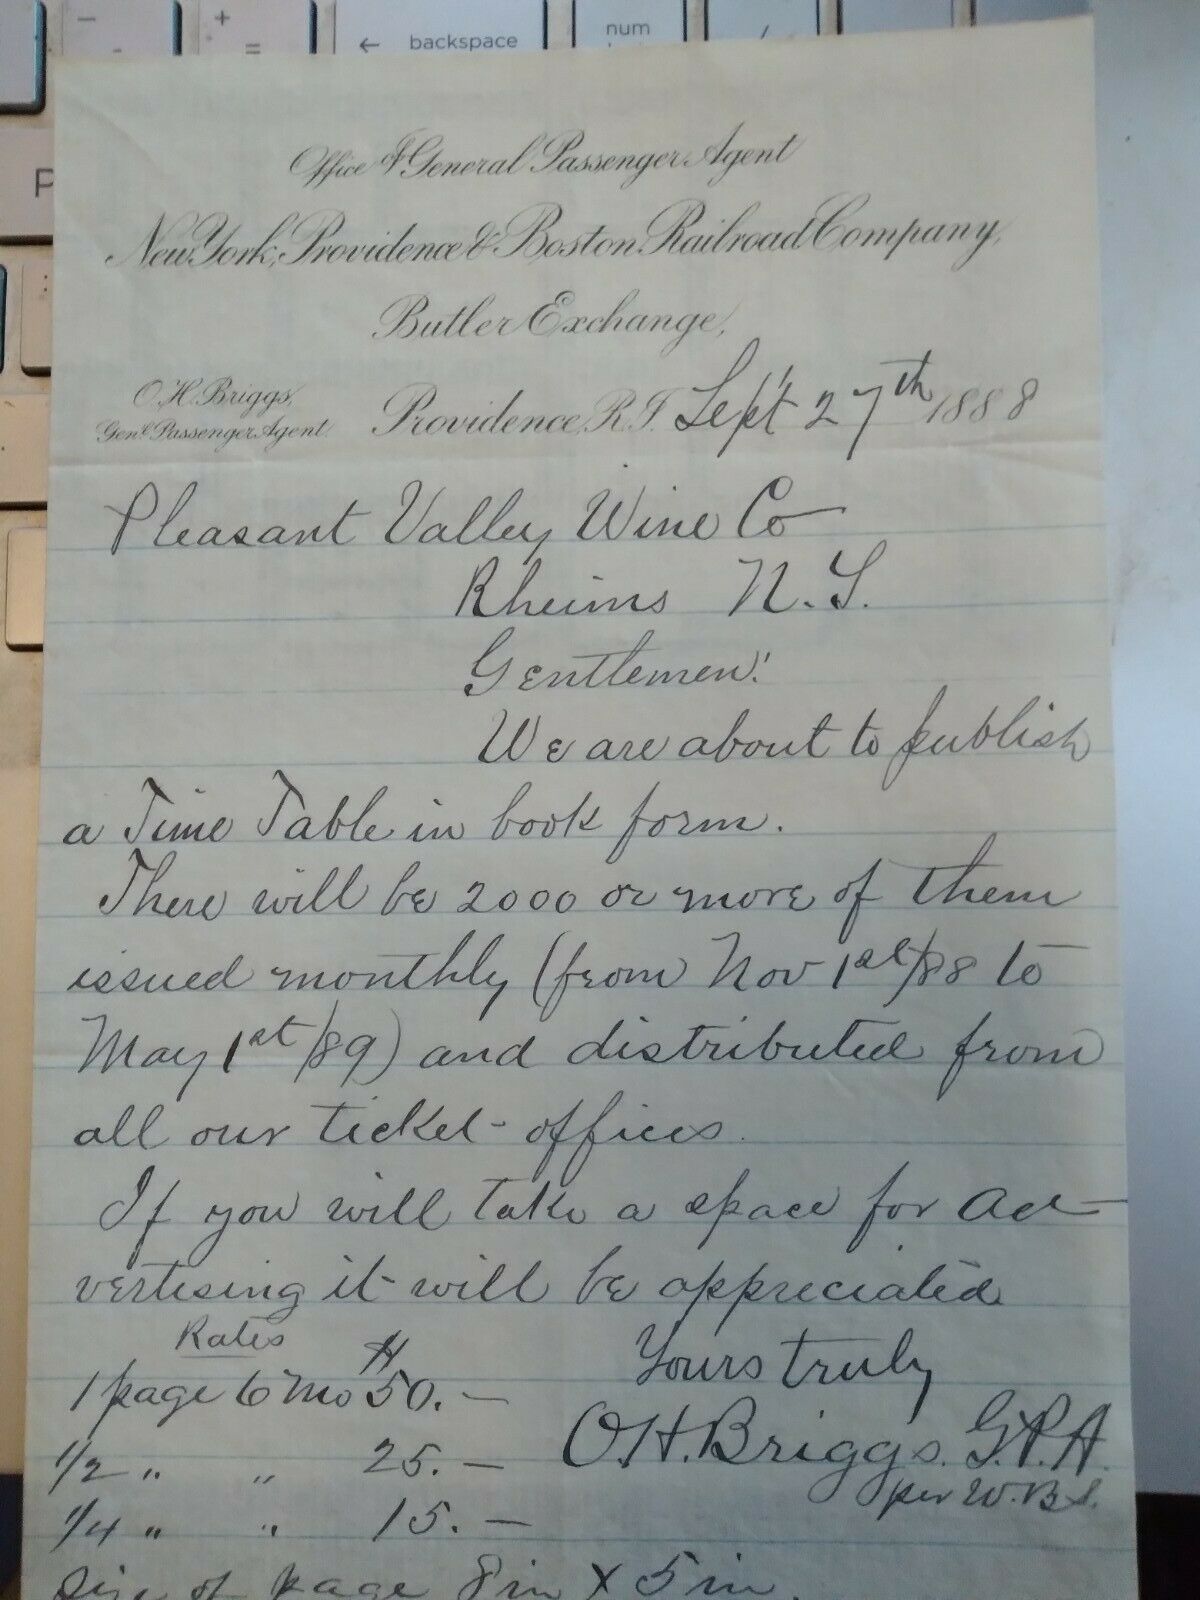 - +
- =
← backspace
num
/
P
Office of General Passenger Agent
New York, Providence & Boston Railroad Company,
Butler Exchange,
O.H. Briggs,
Genl. Passenger Agent.
Providence, R.I. Sep't 27th 1888
Pleasant Valley Wine Co
Rheims N.Y.
Gentlemen!
We are about to publish
a Time Table in book form.
There will be 2000 or more of them
issued monthly (from Nov 1st/88 to
May 1st/89) and distributed from
all our ticket-offices.
If you will take a space for Ad-
vertising it will be appreciated
Rates
Yours truly
1 page 6 mo $50.—
O.H. Briggs. G.P.A.
1/2 " " 25.—
per W.B.S.
1/4 " " 15.—
Size of page 8 in x 5 in.